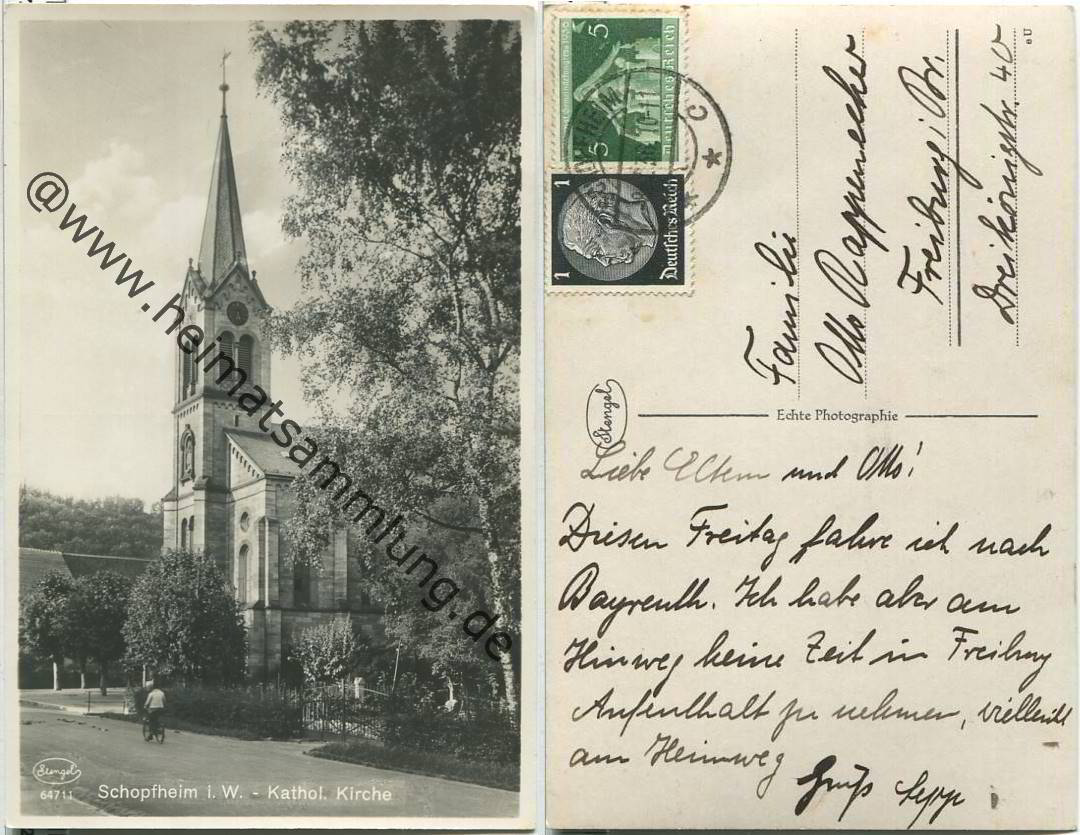 @www.heimatsammlung.de
Stengel
64711
Schopfheim i. W. - Kathol. Kirche
5
5
Deutsches Reich
1
1
Deutsches Reich
Familie
Otto Rappenecker
Freiburg, Br.
Dreikönigstr. 40
eU
Stengel
Echte Photographie
Liebe Eltern und Otto!
Diesen Freitag fahre ich nach
Bayreuth. Ich habe aber am
Hinweg keine Zeit in Freiburg
Aufenthalt zu nehmen, vielleicht
am Heimweg
Gruß Sepp